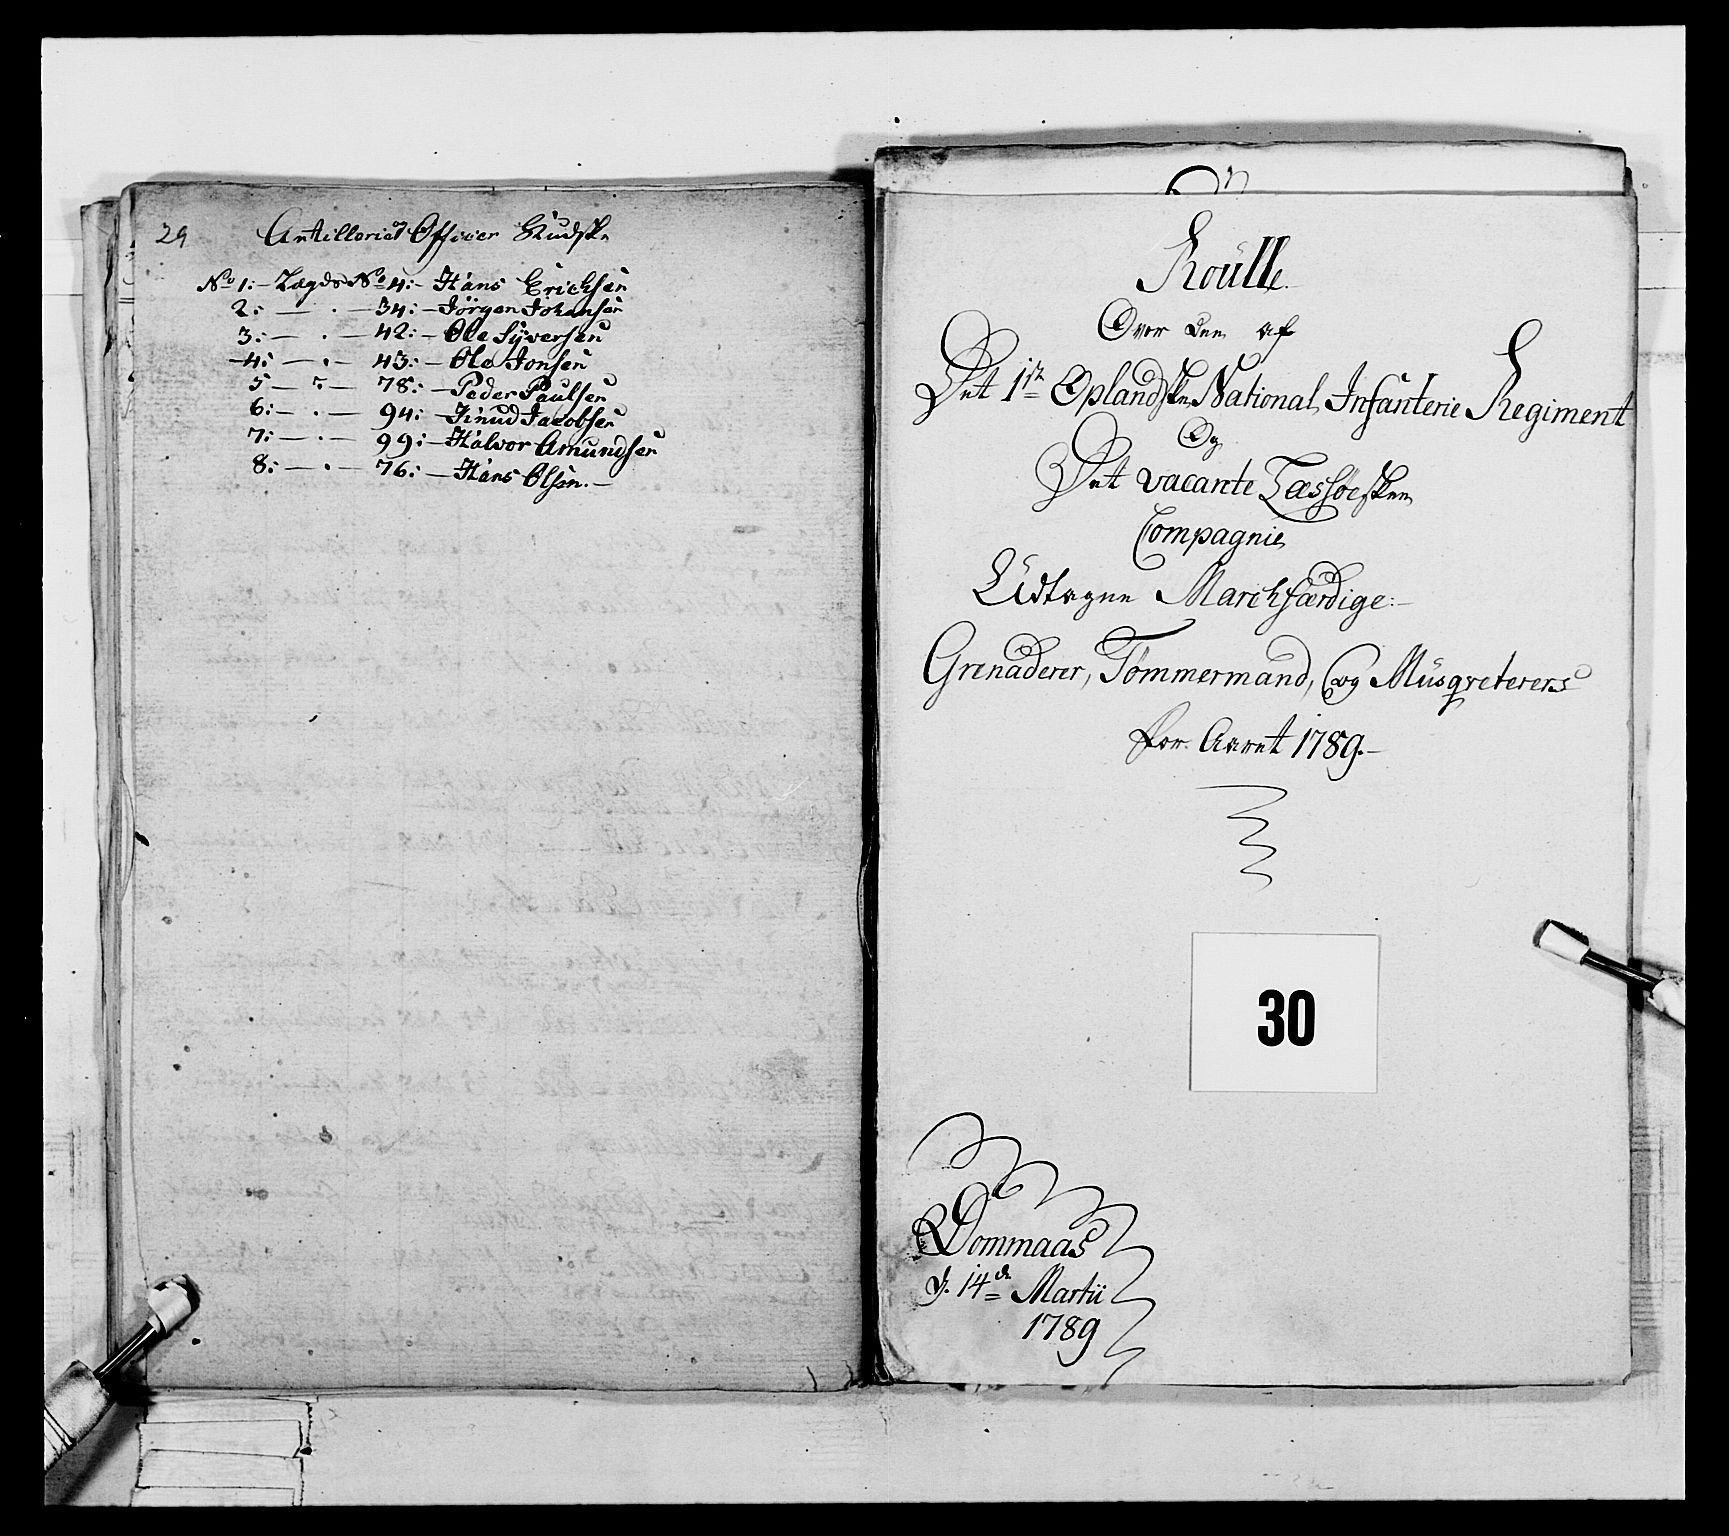 29
Artilleriet Officier Kudske
No 1:- Lægds No 4:- Hans Erichsen
2:- — . — 34:- Jörgen Johansen
3:- — . — 42:- Ole Syversen
4:- — . — 43:- Ole Jonsen
5 — . — 78:- Peder Paulsen
6:- — . — 94:- Knud Jacobsen
7:- — . — 99:- Halvor Amundsen
8:- — . — 76:- Hans Olsen.-
Roulle
Over den af
Det 1te Oplandske National Infanterie Regiment
Og
Det vacante Læssöeske
Compagnie
Udtagne Marchfærdige:-
Grenaderer, Tömmermænd, og Musqveterers
for Aaret 1789.-
30
Dommaas
d. 14de Martii
1789